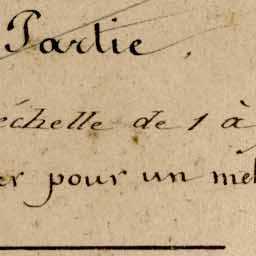 Partie.
échelle de 1 à
er pour un mèt